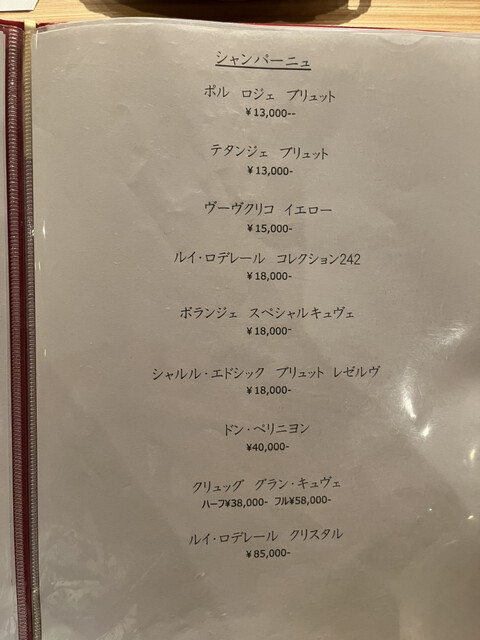 シャンパーニュ
ポル ロジェ ブリュット
¥13,000--
テタンジェ ブリュット
¥13,000-
ヴーヴクリコ イエロー
¥15,000-
ルイ・ロデレール コレクション242
¥18,000-
ボランジェ スペシャルキュヴェ
¥18,000-
シャルル・エドシック ブリュット レゼルヴ
¥18,000-
ドン・ペリニヨン
¥40,000-
クリュッグ グラン・キュヴェ
ハーフ¥38,000- フル¥58,000-
ルイ・ロデレール クリスタル
¥85,000-